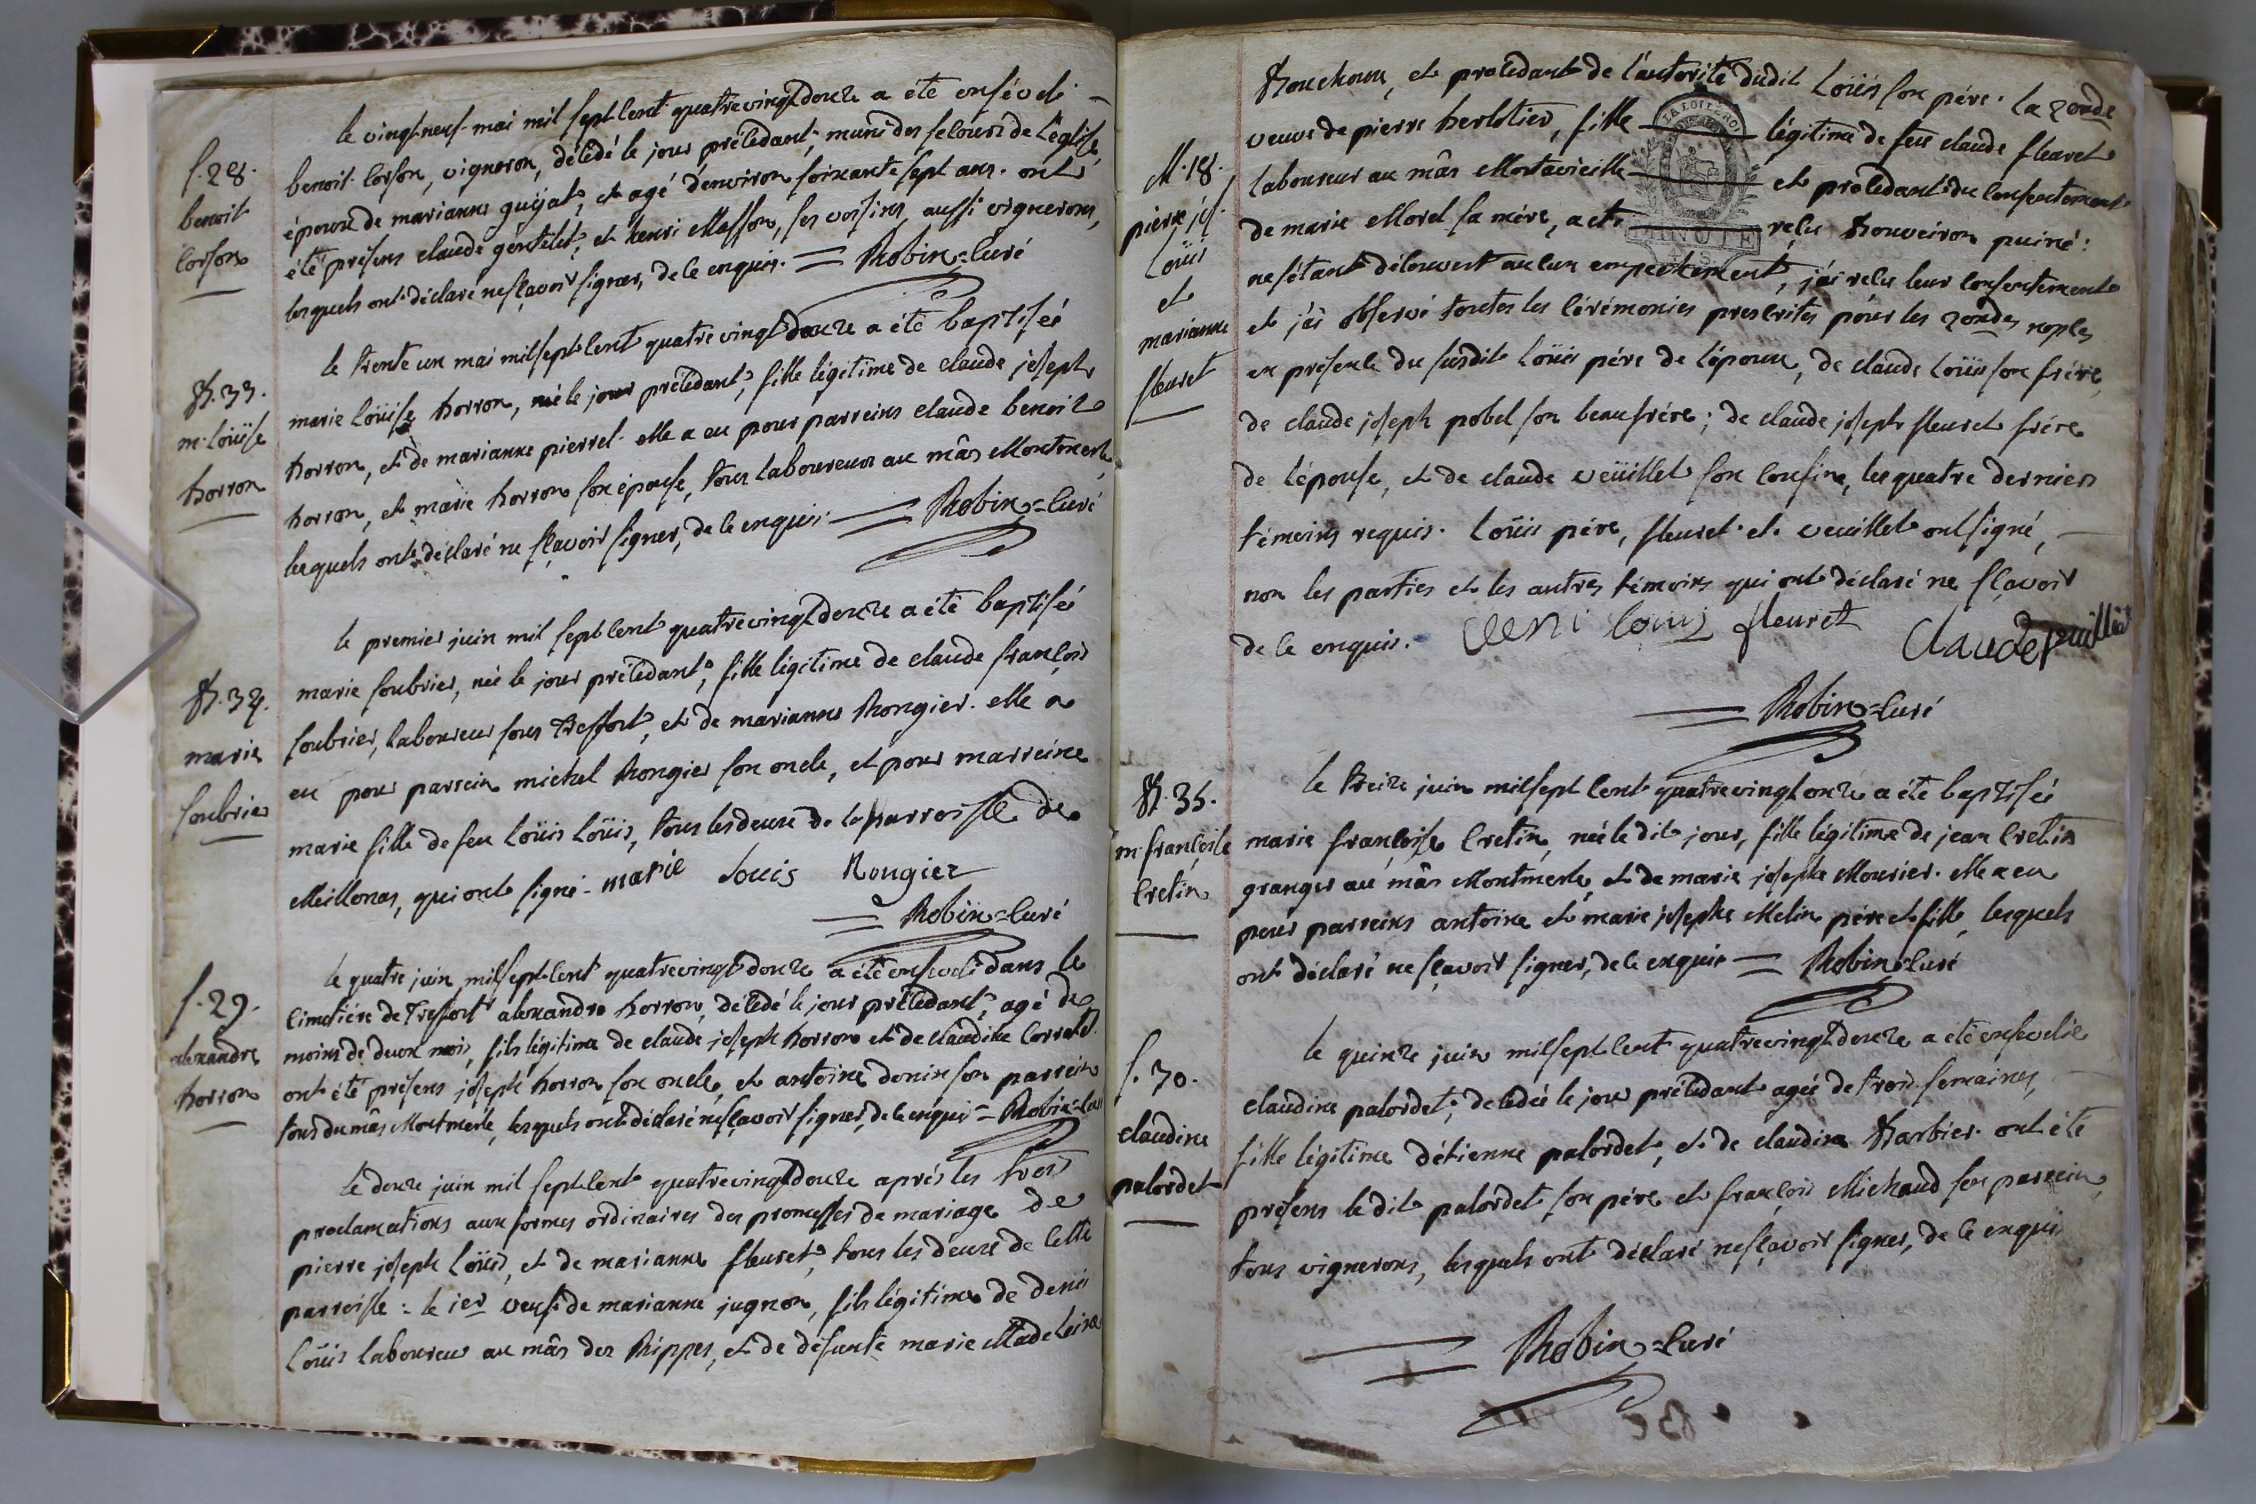 le vingt-neuf mai mil sept cent quatrevingt douze a été enséveli
s. 28.
benoit
corson
benoit corson, vigneron, décédé le jour précédant, muni des secours de l'église,
époux de marianne guÿat, et agé d'environ soixante sept ans. ont
été présens claude gentelet, et henri Masson, ses voisins, aussi vignerons,
lesquels ont déclaré ne sçavoir signer, de ce enquis. = Robin = curé
le trente un mai mil sept cent quatrevingt douze a été baptisée
B. 33.
m. Loüise
horron
marie Loüise horron, née le jour précédant, fille légitime de claude joseph
horron, et de marianne pierrel. elle a eu pour parreins claude benoit
horron, et marie horron son épouse, tous laboureurs au mâs Montmerle,
lesquels ont déclaré ne sçavoir signer, de ce enquis. = Robin = curé
le premier juin mil sept cent quatrevingt douze a été baptisée
B. 34.
marie
soubrier
marie soubrier, née le jour précédant, fille légitime de claude françois
soubrier, laboureur sous Treffort, et de marianne Rongier. elle a
eu pour parrein michel Rongier son oncle, et pour marreine
marie fille de feu Loüis Loüis, tous les deux de la parroisse de
Meillonas, qui ont signé. marie Louis Rougier
= Robin = curé
le quatre juin mil sept cent quatrevingt douze a été enseveli dans le
s. 29.
alexandre
horron
cimetière de Treffort alexandre horron, décédé le jour précédant, agé de
moins de deux mois, fils légitime de claude joseph horron et de claudine Corretel.
ont été présens joseph horron son oncle, et antoine donin son parrein
tous du mâs Montmerle, lesquels ont déclaré ne sçavoir signer, de ce enquis = Robin = curé
le douze juin mil sept cent quatrevingt douze après les trois
proclamations aux formes ordinaires des promesses de mariage de
pierre joseph Loüis, et de marianne fleuret, tous les deux de cette
parroisse : le 1er veuf de marianne jugnon, fils légitime de denis
Loüis laboureur au mâs des Rippes, et de défunte marie Madeleine
Bouchoux, et procédant de l'autorité dudit Loüis son père. la 2onde
M. 18.
pierre jos.
Loüis
et
marianne
fleuret
veuve de pierre herbétier, fille légitime de feu claude fleuret
laboureur au mâs Montavieille et procédant du consentement
de marie Morel sa mère, acte reçu Bouveiron puiné :
ne s'étant découvert aucun empechement, j'ai reçu leur consentement
et j'ai observé toutes les cérémonies prescrites pour les 2ondes noces
en présence du susdit Loüis père de l'époux, de claude Loüis son frère,
de claude joseph pobel son beaufrére ; de claude joseph fleuret frère
de l'épouse, et de claude veüillet son cousin, les quatre derniers
témoins requis. Loüis père, fleuret et veuillet ont signé,
non les parties et les autres témoins qui ont déclaré ne sçavoir
de ce enquis. deni louis fleuret Claude vuillet
= Robin = curé
le treize juin mil sept cent quatrevingt onze a été baptisée
B. 35.
m. françoise
Cretin
marie françoise Cretin, née le dit jour, fille légitime de jean Cretin
granger au mâs Montmerle, et de marie josephe Mourier. elle a eu
pour parreins antoine et marie josephe Melin père et fille, lesquels
ont déclaré ne sçavoir signer, de ce enquis = Robin = curé
le quinze juin mil sept cent quatrevingt douze a été ensevelie
s. 30.
claudine
palordet
claudine palordet, décédée le jour précédant agée de trois semaines,
fille légitime d'étienne palordet, et de claudine Barbier. ont été
présens le dit palordet son père et françois Michaud son parrein,
tous vignerons, lesquels ont déclaré ne sçavoir signer, de ce enquis
= Robin = curé